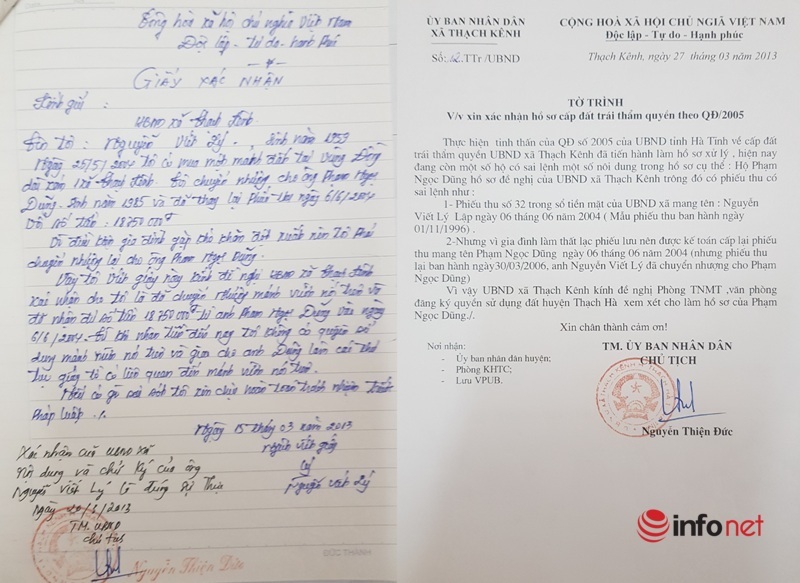 Cộng hòa xã hội chủ nghĩa Việt Nam
Độc lập - Tự do - hạnh phúc
GIẤY XÁC NHẬN
Kính gửi :
UBND xã Thạch Kênh
Tên tôi : Nguyễn Viết Lý. Sinh năm 1959
Ngày 25/5/2004 tôi có mua một mảnh đất tại Vùng Đồng
xã Thạch Kênh. Đã chuyển nhượng cho ông Phạm Ngọc
Dũng - Sinh năm 1985 và đã thay lại Phiếu thu ngày 6/6/2004
Với số tiền : 18750 000đ
Vì điều kiện gia đình gặp khó khăn đột xuất nên tôi phải
chuyển nhượng lại cho ông Phạm Ngọc Dũng.
Vậy tôi viết giấy này kính đề nghị UBND xã Thạch Kênh
xác nhận cho tôi là đã chuyển nhượng mảnh vườn nói trên và
đã nhận đủ số tiền 18 750 000đ từ anh Phạm Ngọc Dũng vào ngày
6/6/2004. Từ khi nhận tiền đến nay tôi không có quyền sử
dụng mảnh vườn nói trên và giao cho anh Dũng làm các thủ
tục giấy tờ có liên quan đến mảnh vườn nói trên.
Nếu có gì sai sót tôi xin chịu hoàn toàn trách nhiệm trước
Pháp luật ./.
Ngày 15 tháng 03 năm 2013
Người viết giấy
Lý
Nguyễn Viết Lý
Xác nhận của UBND xã
Nội dung và chữ ký của ông
Nguyễn Viết Lý là đúng sự thực
Ngày 2013
TM. UBND
Chủ tịch
Nguyễn Thiện Đức
ĐỨC THÀNH
ỦY BAN NHÂN DÂN
XÃ THẠCH KÊNH
Số: 12.TTr /UBND
CỘNG HOÀ XÃ HỘI CHỦ NGHĨA VIỆT NAM
Độc lập - Tự do - Hạnh phúc
Thạch Kênh, ngày 27 tháng 03 năm 2013
TỜ TRÌNH
V/v xin xác nhận hồ sơ cấp đất trái thẩm quyền theo QĐ/2005
Thực hiện tinh thần của QĐ số 2005 của UBND tỉnh Hà Tĩnh về cấp đất
trái thẩm quyền UBND xã Thạch Kênh đã tiến hành làm hồ sơ xử lý , hiện nay
đang còn một số hộ có sai lệnh một số nôi dung trong hồ sơ cụ thể : Hộ Phạm
Ngọc Dũng hồ sơ đề nghị của UBND xã Thạch Kênh trông đó có phiếu thu có
sai lệnh như :
1- Phiếu thu số 32 trong sổ tiền mặt của UBND xã mang tên : Nguyễn
Viết Lý Lập ngày 06 tháng 06 năm 2004 ( Mẫu phiếu thu ban hành ngày
01/11/1996) .
2-Nhưng vì gia đình làm thất lạc phiếu lưu nên được kế toán cấp lại phiếu
thu mang tên Phạm Ngọc Dũng ngày 06 tháng 06 năm 2004 (nhưng phiếu thu
lại ban hành ngày30/03/2006, anh Nguyễn Viết Lý đã chuyển nhượng cho Phạm
Ngọc Dũng)
Vì vậy UBND xã Thạch Kênh kính đề nghị Phòng TNMT ,văn phòng
đăng ký quyền sử dụng đất huyện Thạch Hà xem xét cho làm hồ sơ của Phạm
Ngọc Dũng./.
Xin chân thành cảm ơn!
Nơi nhận:
- Ủy ban nhân dân huyện;
- Phòng KHTC;
- Lưu VPUB.
TM. ỦY BAN NHÂN DÂN
CHỦ TỊCH
Nguyễn Thiện Đức
infonet